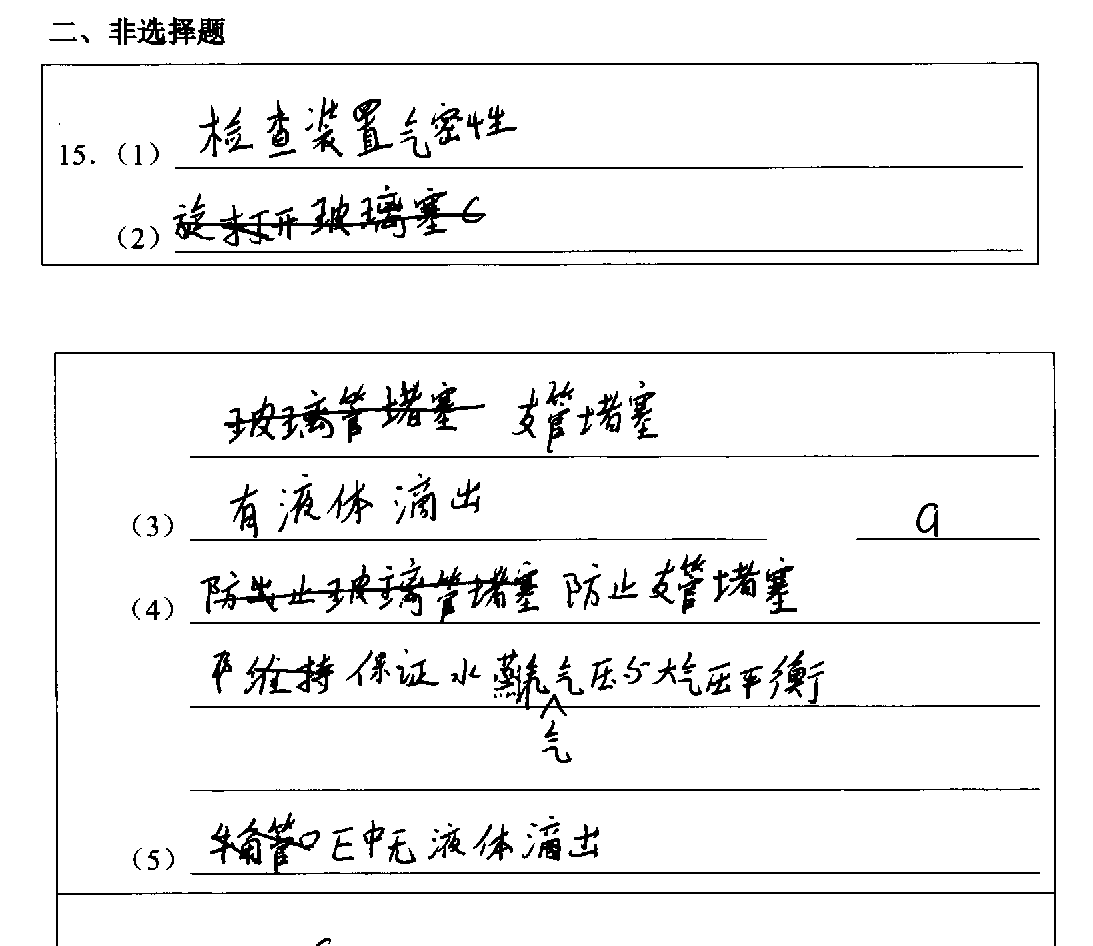 二、非选择题
15.（1） 检查装置气密性
（2） 旋打开玻璃塞C
玻璃管堵塞 支管堵塞
（3） 有液体滴出 a
（4） 防止玻璃管堵塞 防止支管堵塞
维持 保证水蒸气气压与大气压平衡
（5） 牛角管口E中无液体滴出